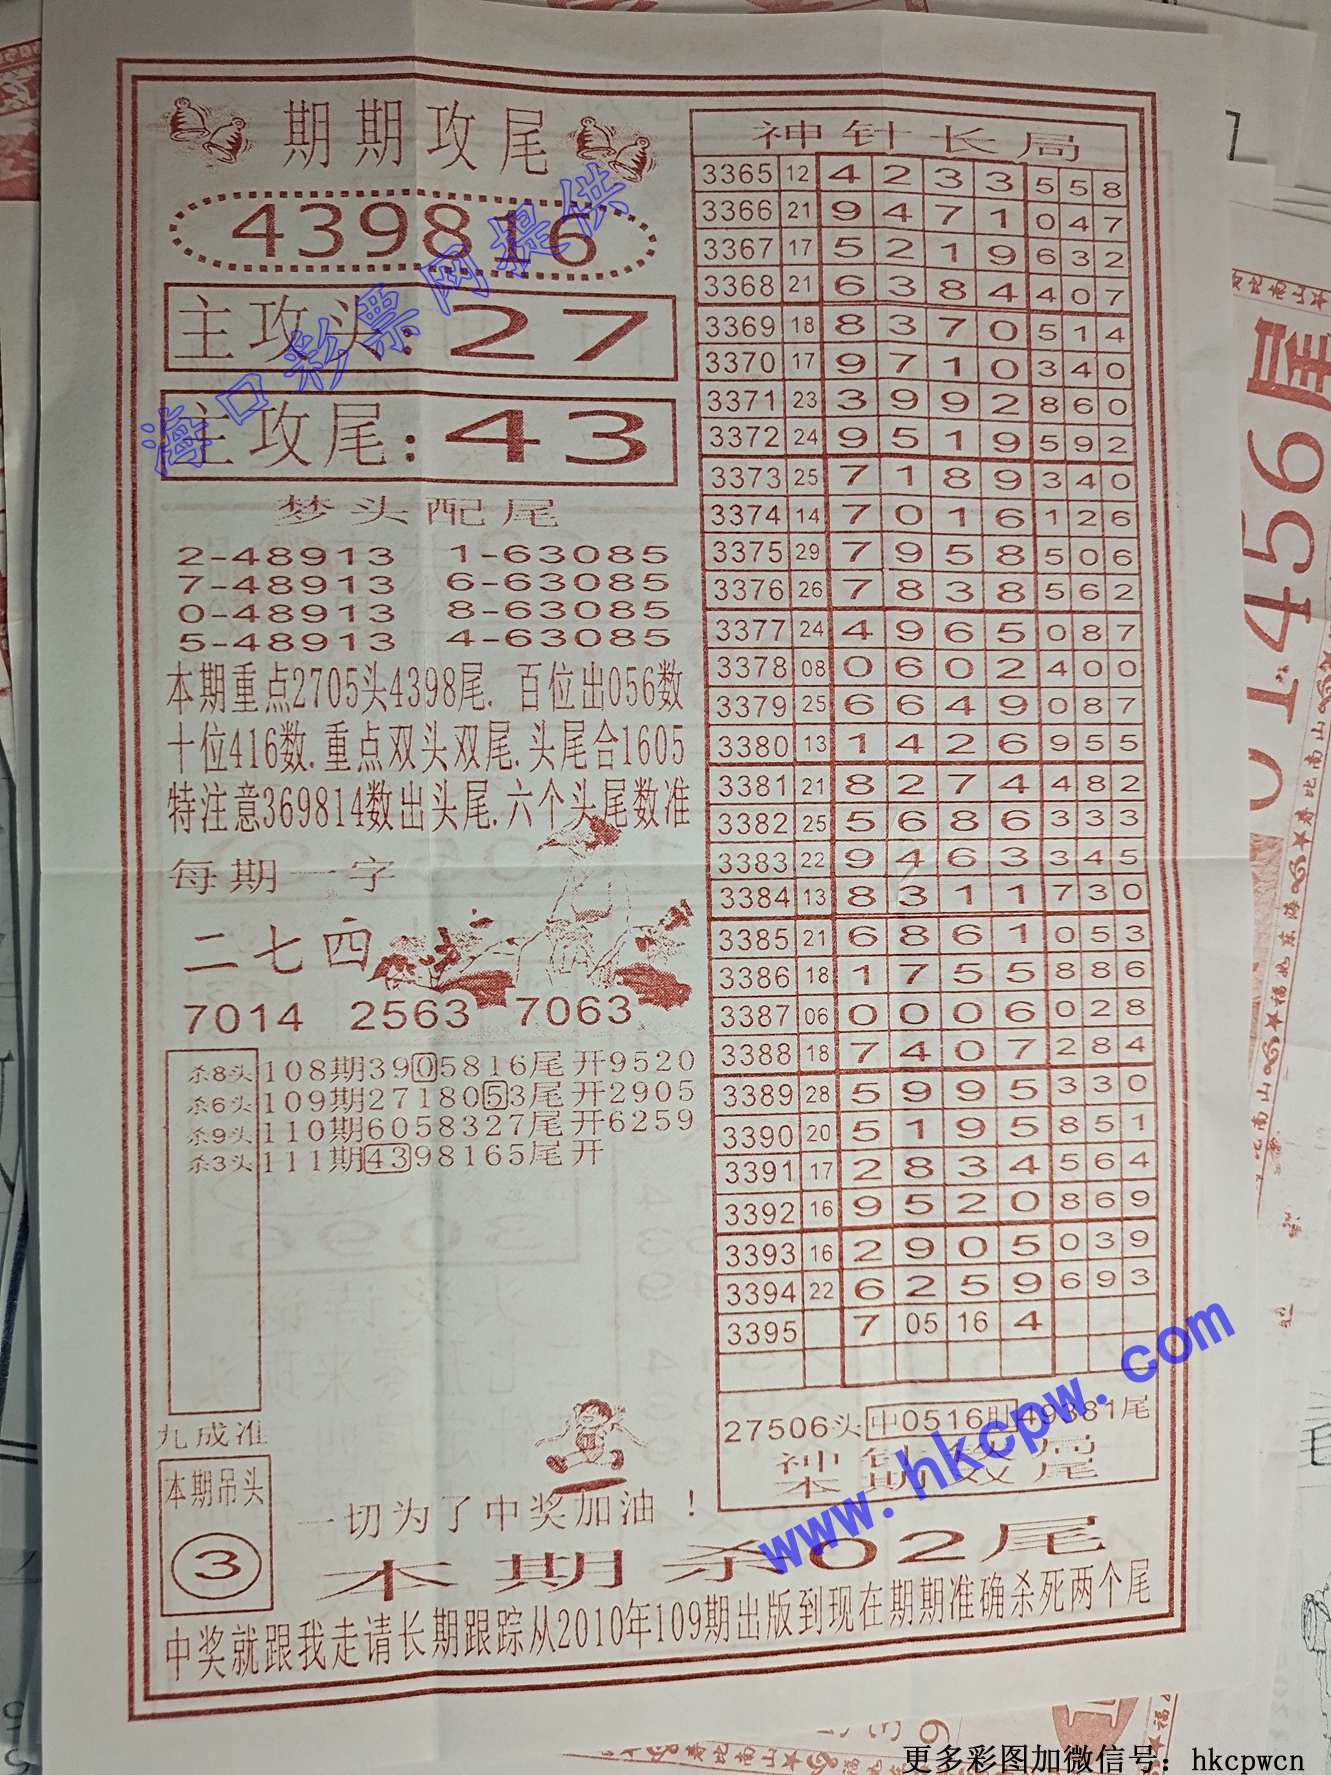 期期攻尾
439816
主攻头:27
主攻尾:43
梦头配尾
2-48913 1-63085
7-48913 6-63085
0-48913 8-63085
5-48913 4-63085
本期重点2705头4398尾. 百位出056数
十位416数.重点双头双尾.头尾合1605
特注意369814数出头尾.六个头尾数准
每期一字
二七四
7014 2563 7063
杀8头 108期3905816尾开9520
杀6头 109期2718053尾开2905
杀9头 110期6058327尾开6259
杀3头 111期4398165尾开
九成准
本期吊头
3
一切为了中奖加油！
神针长局
3365 12 4 2 3 3 5 5 8
3366 21 9 4 7 1 0 4 7
3367 17 5 2 1 9 6 3 2
3368 21 6 3 8 4 4 0 7
3369 18 8 3 7 0 5 1 4
3370 17 9 7 1 0 3 4 0
3371 23 3 9 9 2 8 6 0
3372 24 9 5 1 9 5 9 2
3373 25 7 1 8 9 3 4 0
3374 14 7 0 1 6 1 2 6
3375 29 7 9 5 8 5 0 6
3376 26 7 8 3 8 5 6 2
3377 24 4 9 6 5 0 8 7
3378 08 0 6 0 2 4 0 0
3379 25 6 6 4 9 0 8 7
3380 13 1 4 2 6 9 5 5
3381 21 8 2 7 4 4 8 2
3382 25 5 6 8 6 3 3 3
3383 22 9 4 6 3 3 4 5
3384 13 8 3 1 1 7 3 0
3385 21 6 8 6 1 0 5 3
3386 18 1 7 5 5 8 8 6
3387 06 0 0 0 6 0 2 8
3388 18 7 4 0 7 2 8 4
3389 28 5 9 9 5 3 3 0
3390 20 5 1 9 5 8 5 1
3391 17 2 8 3 4 5 6 4
3392 16 9 5 2 0 8 6 9
3393 16 2 9 0 5 0 3 9
3394 22 6 2 5 9 6 9 3
3395 7 05 16 4
27506头中0516肚49381尾
神针长局
本期双尾
本期杀02尾
中奖就跟我走请长期跟踪从2010年109期出版到现在期期准确杀死两个尾
海口彩票网提供
www.hkcpw.com
01456尾
更多彩图加微信号：hkcpwcn